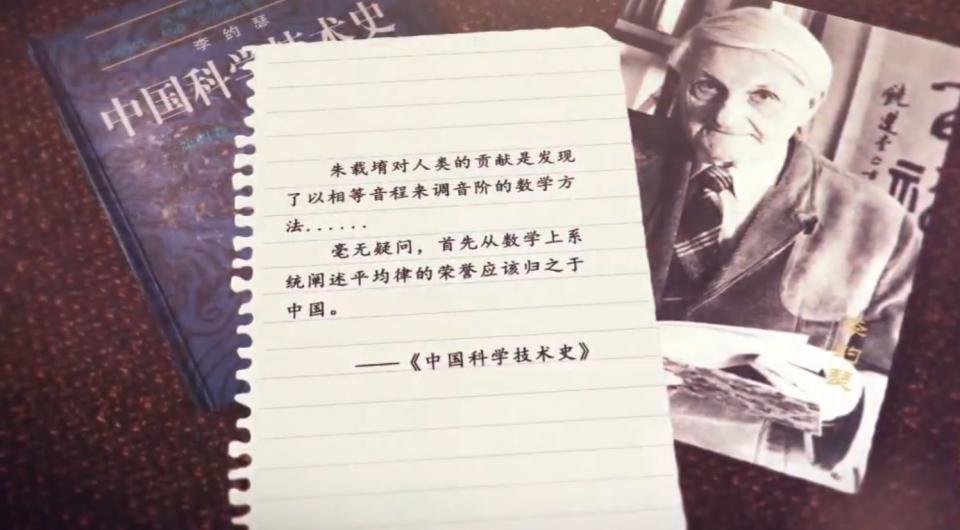 李约瑟
中国科学技术史
朱载堉对人类的贡献是发现
了以相等音程来调音阶的数学方
法......
毫无疑问，首先从数学上系
统阐述平均律的荣誉应该归之于
中国。
——《中国科学技术史》
李约瑟